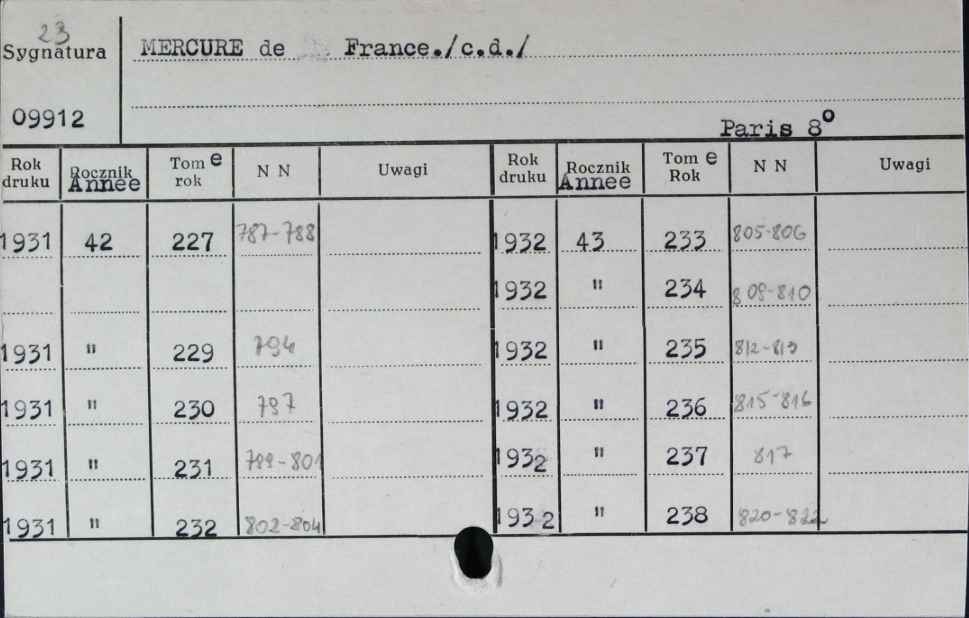 23
Sygnatura MERCURE de France./c.d./
09912
Paris 8°
Rok druku Rocznik Annee Tom e rok N N Uwagi Rok druku Rocznik Annee Tom e Rok N N Uwagi
1931 42 227 787-788 1932 43 233 805-806
1932 " 234 808-810
1931 " 229 794 1932 " 235 812-813
1931 " 230 797 1932 " 236 815-816
1931 " 231 799-801 1932 " 237 817
1931 " 232 802-804 1932 " 238 820-822